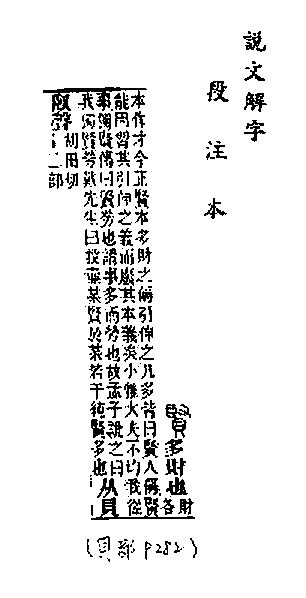 說文解字
段注本
賢多財也財
各
本作才今正賢本多財之偁引伸之凡多皆曰賢人偁賢
能因習其引伸之義而廢其本義矣小雅大夫不均我從
事獨賢傳曰賢勞也謂事多而勞也故孟子說之曰
我獨賢勞戴先生曰投壺某賢於某若干純賢多也
从貝
臤聲胡田切
十二部
(貝部 P282)